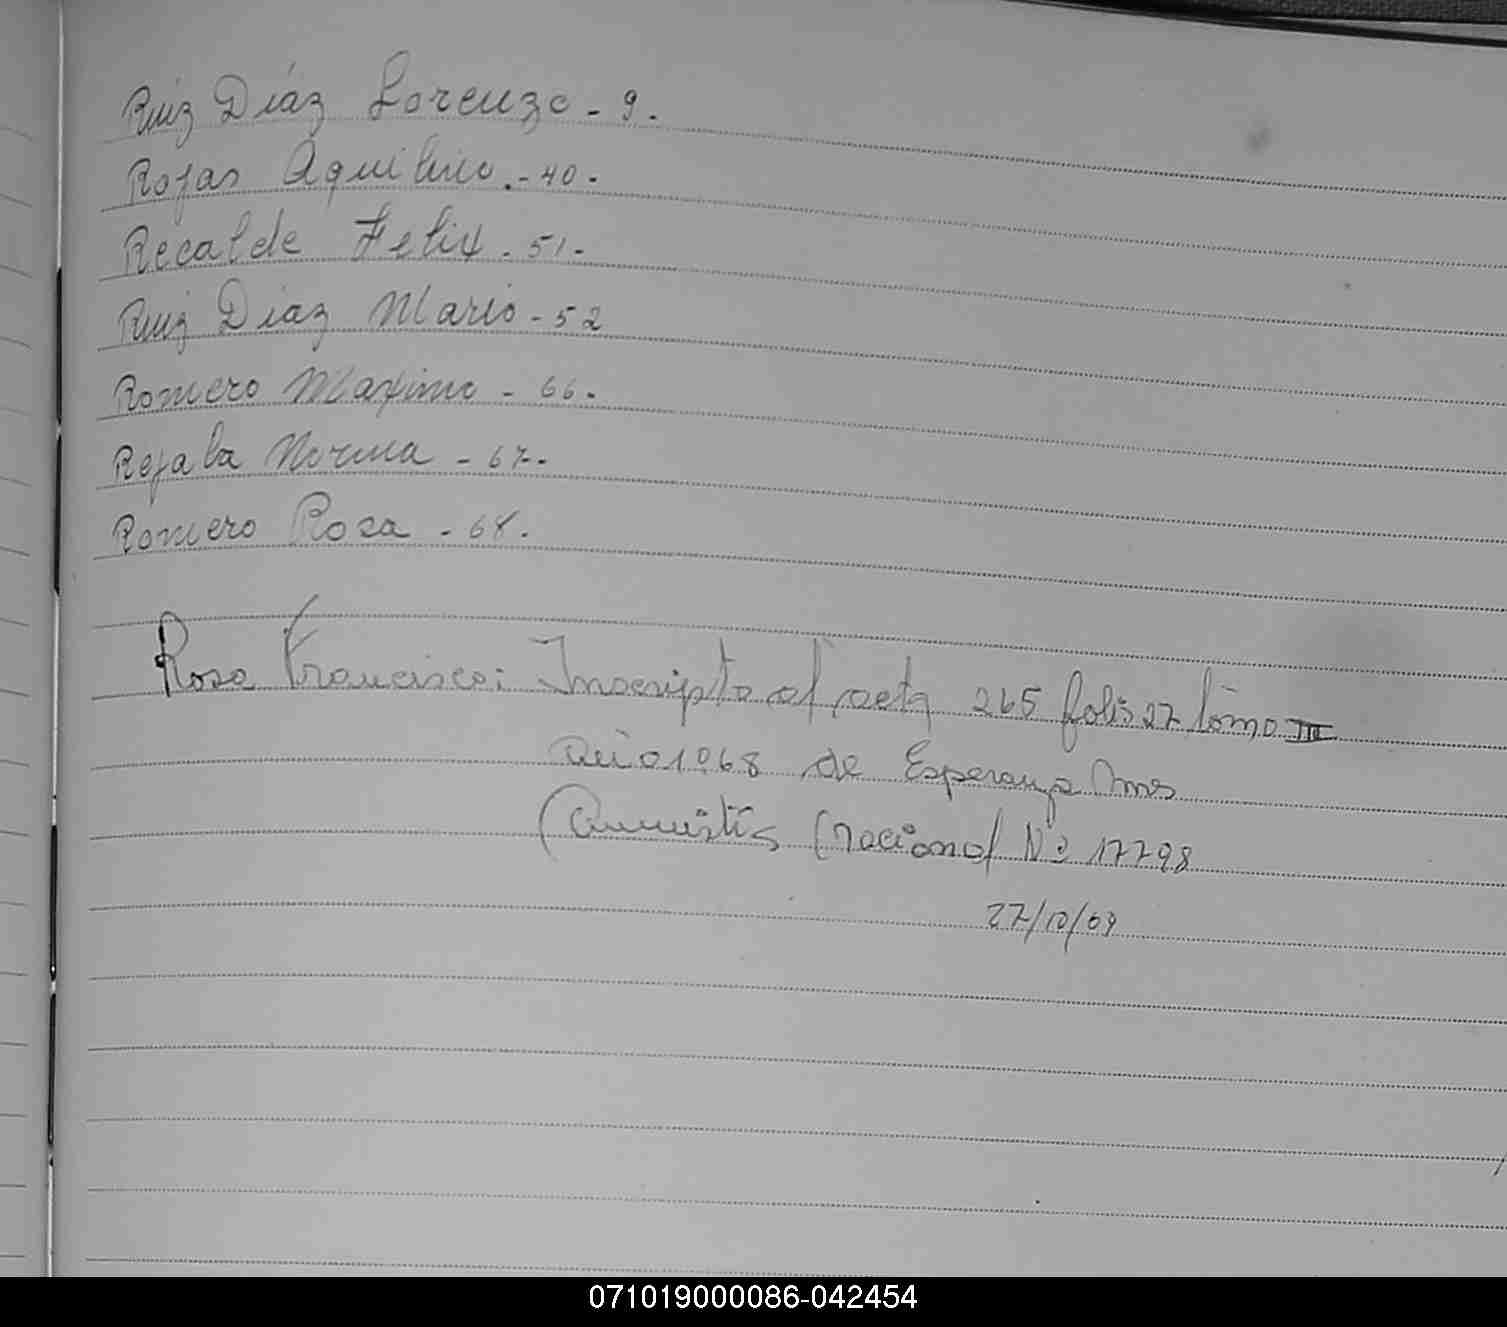 Ruiz Díaz Lorenzo - 9 -
Rojas Aquilino - 40 -
Recalde Felix - 51 -
Ruiz Diaz Mario - 52
Romero Maximo - 66 -
Rejala Norma - 67 -
Romero Rosa - 68 -
Rosa Francisco: Inscripto al acta 265 folio 27 tomo III
Año 1968 de Esperanza Mnes
(Amnistía Nacional Nº 17798
27/10/69
071019000086-042454